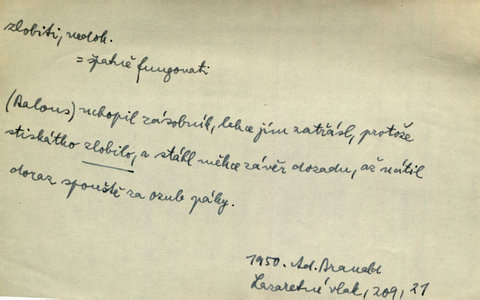 zlobiti, nedok.
= špatně fungovati
(Balous) uchopil zásobník, lehce jím zatřásl, protože
stiskátko zlobilo, a stáhl měkce závěr dozadu, až nutil
doraz spouště za ozub páky.
1950. Ad. Branald
Lazaretní vlak, 209, 21